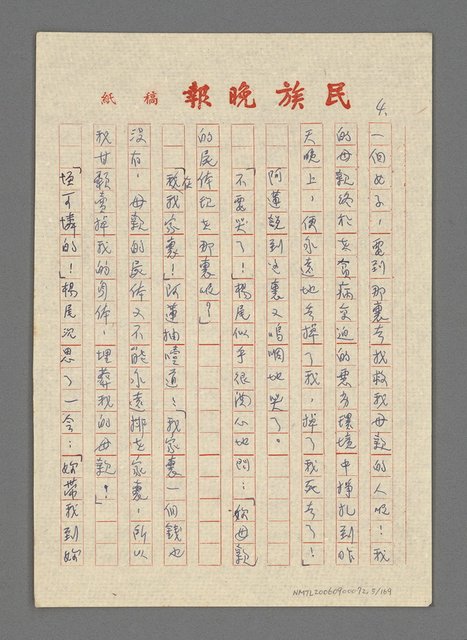 民族晚報 稿紙
4.
一個女子，要到那裏去找救我母親的人呢！我
的母親終於在貧病交迫的惡劣環境中掙扎到昨
天晚上，便永遠地去掉了我，掉了我死去了！」
阿蓮說到這裏又嗚咽地哭了。
「不要哭了！」楊尾似乎很関心地問：「妳母親
的屍体現在那裏呢？」
「就在我家裏！」阿蓮抽噎道：「我家裏一個錢也
没有，母親的屍体又不能永遠擺在家裏，所以
我甘願賣掉我的身体，埋葬我的母親！」
「怪可憐的！」楊尾沉思了一会：「妳帶我到妳
NMTL20060900092 5/169